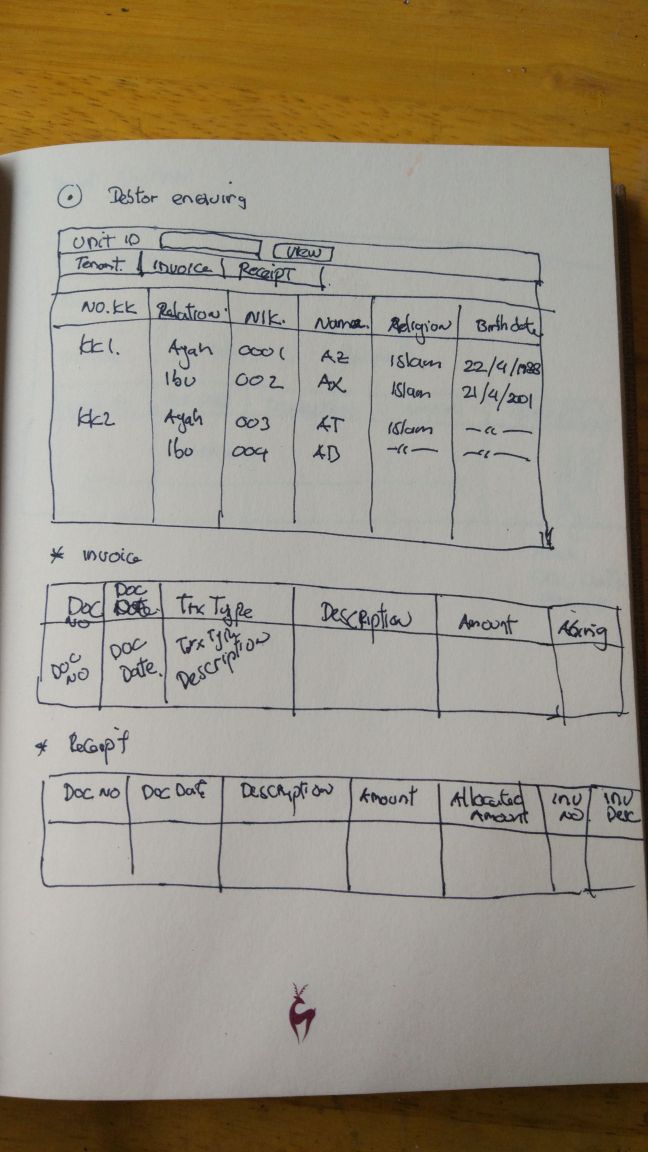 Debtor enquiring
Unit ID View
Tenant. Invoice Receipt
NO.KK Relation. NIK. Name. Religion Birthdate
KK1. Ayah 0001 AZ Islam 22/4/1988
Ibu 002 AX Islam 21/4/2001
KK2 Ayah 003 AT Islam —"—
Ibu 004 AB —"— —"—
* Invoice
Doc NO Doc Date Trx Type Description Amount
Doc NO Doc Date. Trx Type Description
* Receipt
Doc NO Doc Date Description Amount Allocated Amount Inv NO Inv Desc